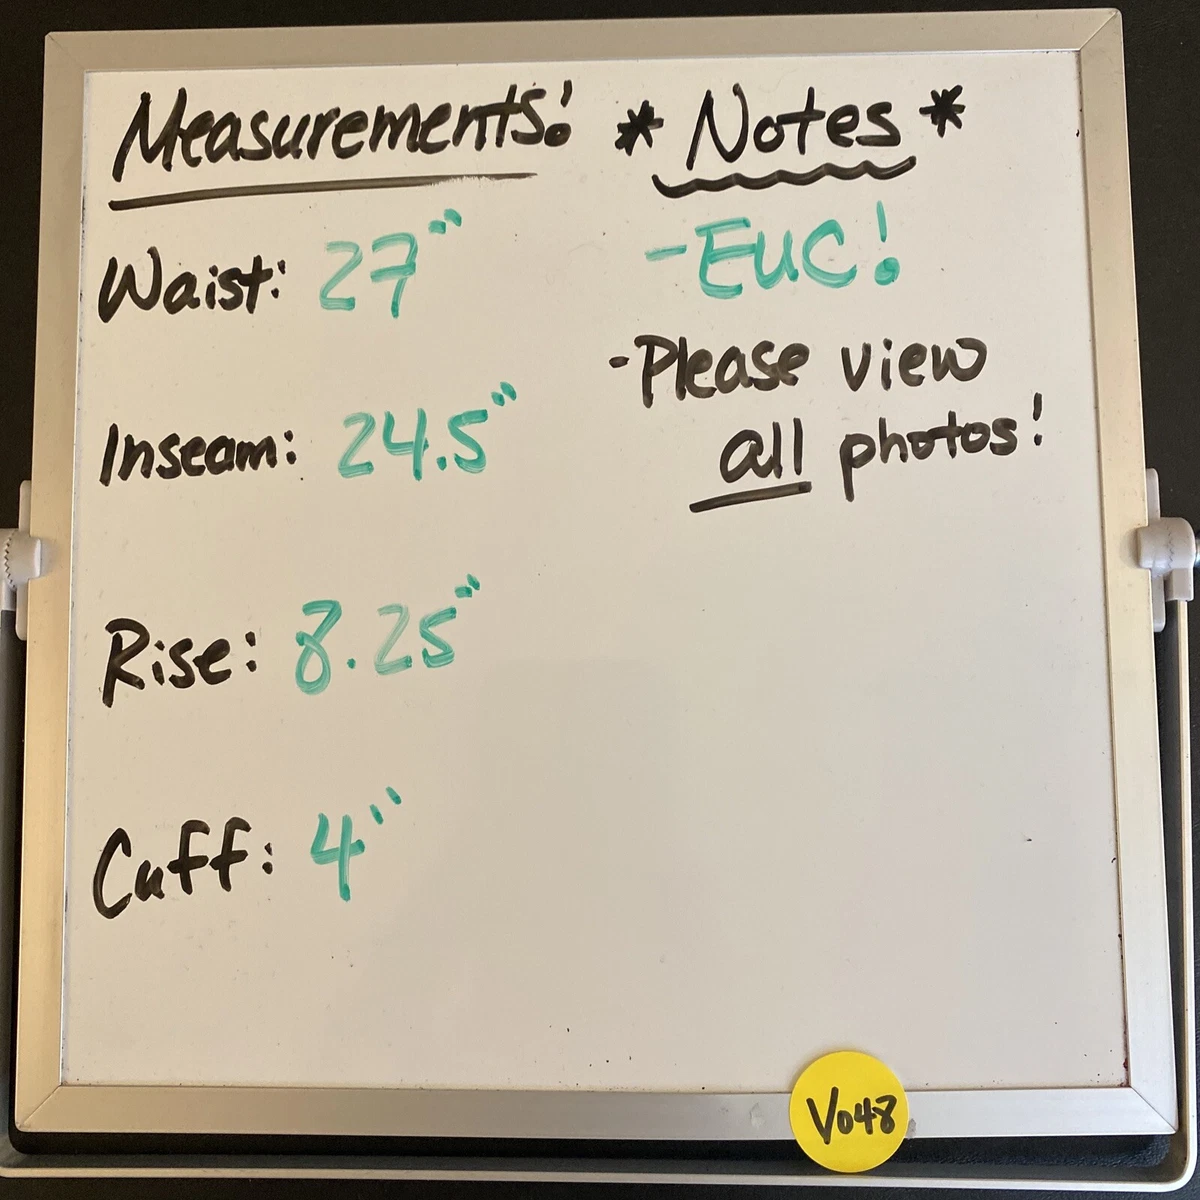 Measurements:
Waist: 27"
Inseam: 24.5"
Rise: 8.25"
Cuff: 4"
* Notes *
- EUC!
- Please view
all photos!
V048